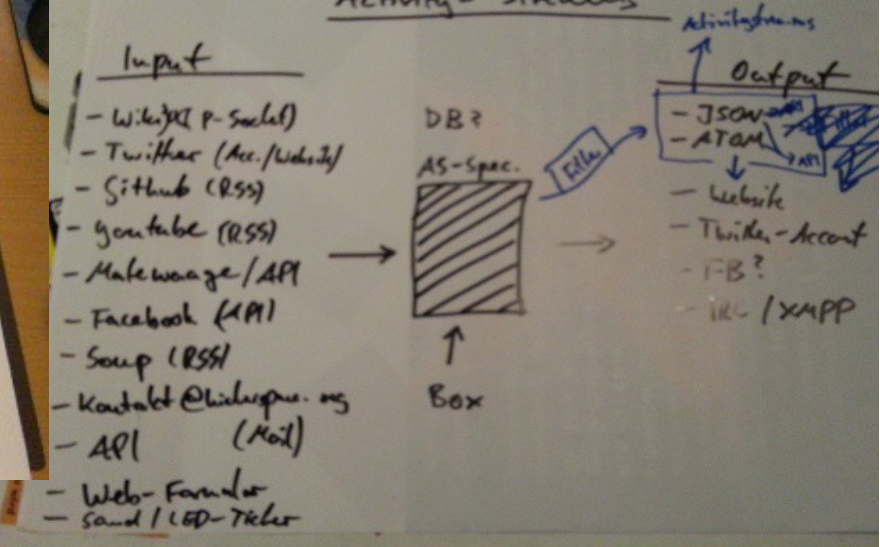 Activity-Streams
Input
- Wiki P-Socket)
- Twitter (Acc./Website)
- Github (RSS)
- Youtube (RSS)
- Matewaage/API
- Facebook (API)
- Soup (RSS)
- Kontakt@
(Mail)
- API
- Web-Formular
- Sound/LED-Ticker
DB?
AS-Spec.
Box
Filter
Activitystreams
Output
- JSON
- ATOM
API
- Website
- Twitter-Account
- FB?
- IRC/XMPP